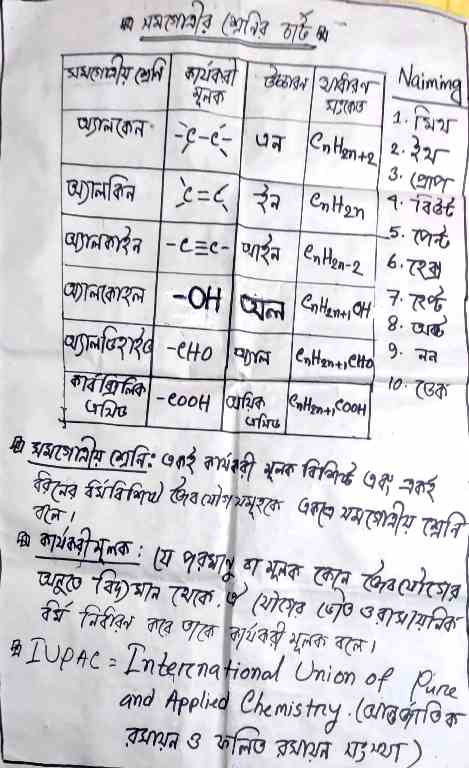 সমগোত্রীয় শ্রেনির চার্ট
সমগোত্রীয় শ্রেনি কার্যকরী মূলক উচ্চারন সাধারণ সংকেত
অ্যালকেন -C-C- এন CnH2n+2
অ্যালকিন C=C ইন CnH2n
অ্যালকাইন -C≡C- আইন CnH2n-2
অ্যালকোহল -OH অল CnH2n+1OH
অ্যালডিহাইড -CHO অ্যাল CnH2n+1CHO
কার্বক্সিলিক এসিড -COOH অয়িক এসিড CnH2n+1COOH
Naiming
1. মিথ
2. ইথ
3. প্রোপ
4. বিউট
5. পেন্ট
6. হেক্স
7. হেপ্ট
8. অক্ট
9. নন
10. ডেক
সমগোত্রীয় শ্রেনি: একই কার্যকরী মূলক বিশিষ্ট এবং একই
ধরনের ধর্মবিশিষ্ট জৈব যৌগ সমূহকে একত্রে সমগোত্রীয় শ্রেনি
বলে।
কার্যকরী মূলক: যে পরমাণু বা মূলক কোন জৈব যৌগের
অনুতে বিদ্যমান থেকে ঐ যৌগের ভৌত ও রাসায়নিক
ধর্ম নির্ধারণ করে তাকে কার্যকরী মূলক বলে।
IUPAC = International Union of Pure
and Applied Chemistry. (আন্তর্জাতিক
রসায়ন ও ফলিত রসায়ন সংস্থা)